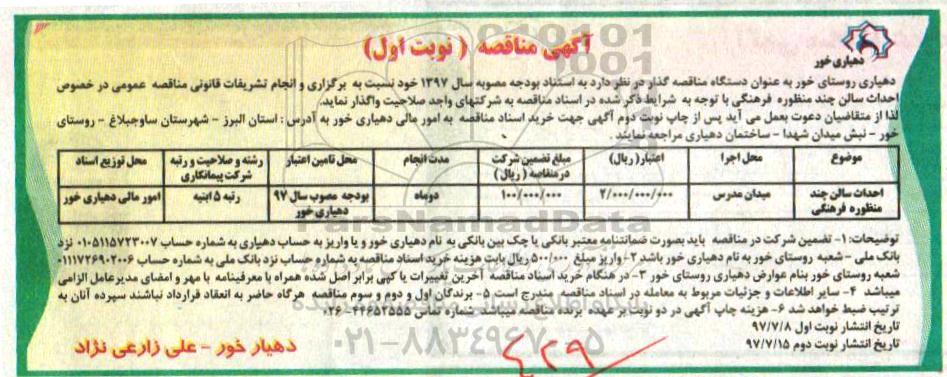 آگهی مناقصه ( نوبت اول)
دهیاری خور
دهیاری روستای خور به عنوان دستگاه مناقصه گذار در نظر دارد به استناد بودجه مصوبه سال ۱۳۹۷ خود نسبت به برگزاری و انجام تشریفات قانونی مناقصه عمومی در خصوص
احداث سالن چند منظوره فرهنگی با توجه به شرایط ذکر شده در اسناد مناقصه به شرکتهای واجد صلاحیت واگذار نماید.
لذا از متقاضیان دعوت بعمل می آید پس از چاپ نوبت دوم آگهی جهت خرید اسناد مناقصه به امور مالی دهیاری خور به آدرس : استان البرز - شهرستان ساوجبلاغ - روستای
خور - نبش میدان شهدا - ساختمان دهیاری مراجعه نمایند .
موضوع | محل اجرا | اعتبار( ریال) | مبلغ تضمین شرکت در مناقصه ( ریال ) | مدت انجام | محل تامین اعتبار | رشته و صلاحیت و رتبه شرکت پیمانکاری | محل توزیع اسناد
احداث سالن چند منظوره فرهنگی | میدان مدرس | ۲/۰۰۰/۰۰۰/۰۰۰ | ۱۰۰/۰۰۰/۰۰۰ | دوماه | بودجه مصوب سال ۹۷ دهیاری خور | رتبه ۵ ابنیه | امور مالی دهیاری خور
توضیحات: ۱- تضمین شرکت در مناقصه باید بصورت ضمانتنامه معتبر بانکی یا چک بین بانکی به نام دهیاری خور و یا واریز به حساب دهیاری به شماره حساب ۰۱۰۵۱۱۵۷۲۳۰۰۷ نزد
بانک ملی - شعبه روستای خور به نام دهیاری خور باشد ۲- واریز مبلغ ۵۰۰/۰۰۰ ریال بابت هزینه خرید اسناد مناقصه به شماره حساب نزد بانک ملی به شماره حساب ۰۱۱۱۷۲۶۹۰۲۰۰۶
شعبه روستای خور بنام عوارض دهیاری روستای خور ۳- در هنگام خرید اسناد مناقصه آخرین تغییرات یا کپی برابر اصل شده همراه با معرفینامه با مهر و امضای مدیرعامل الزامی
میباشد ۴- سایر اطلاعات و جزئیات مربوط به معامله در اسناد مناقصه مندرج است ۵- برندگان اول و دوم و سوم مناقصه هرگاه حاضر به انعقاد قرارداد نباشند سپرده آنان به
ترتیب ضبط خواهد شد ۶- هزینه چاپ آگهی در دو نوبت بر عهده برنده مناقصه میباشد. شماره تماس ۴۴۶۵۲۵۵۵-۰۲۶
تاریخ انتشار نوبت اول ۹۷/۷/۸
تاریخ انتشار نوبت دوم ۹۷/۷/۱۵
دهیار خور - علی زارعی نژاد
ParsNamadData
۰۲۱-۸۸۳۴۹۶۷۰-۵
۴۲۹